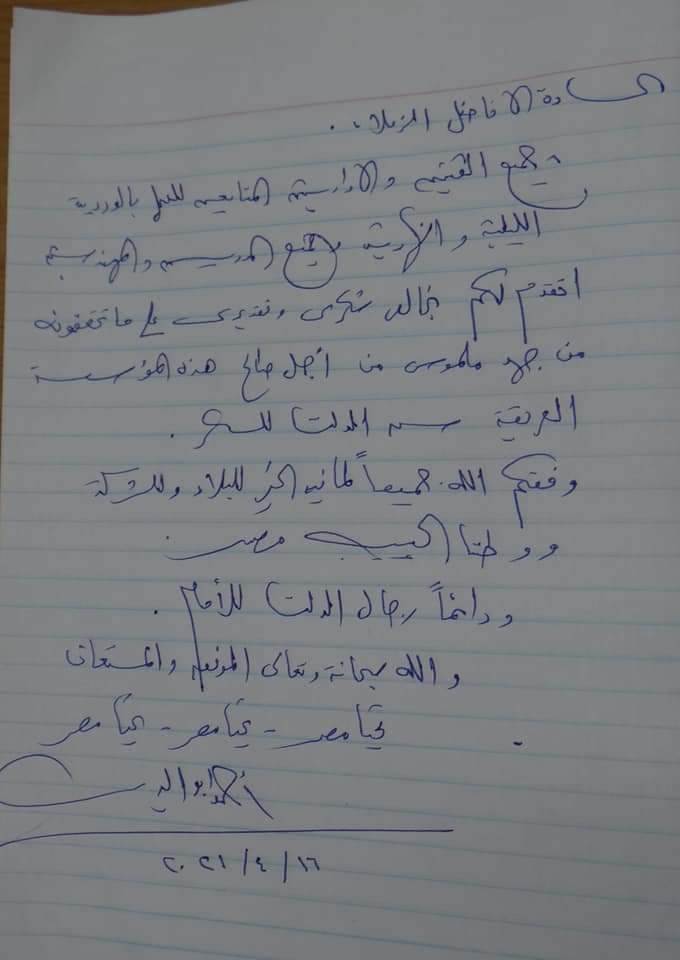 السادة الأفاضل الزملاء..
جميع الفنيين والإداريين المتابعين للعمل بالوردية
الليلية والنهارية وجميع المديرين والمهندسين
أتقدم لكم بخالص شكرى وتقديرى على ما تحققونه
من جهد ملموس من أجل صالح هذه المؤسسة
العريقة الدلتا للسكر.
وفقكم الله جميعاً لما فيه الخير للبلاد وللشركة
ووطننا الحبيب مصر
ودائماً رجال الدلتا للأمام.
والله سبحانه وتعالى الموفق والمستعان
تحيا مصر - تحيا مصر - تحيا مصر
أحمد أبو اليزيد
١٦/٤/٢٠٢١